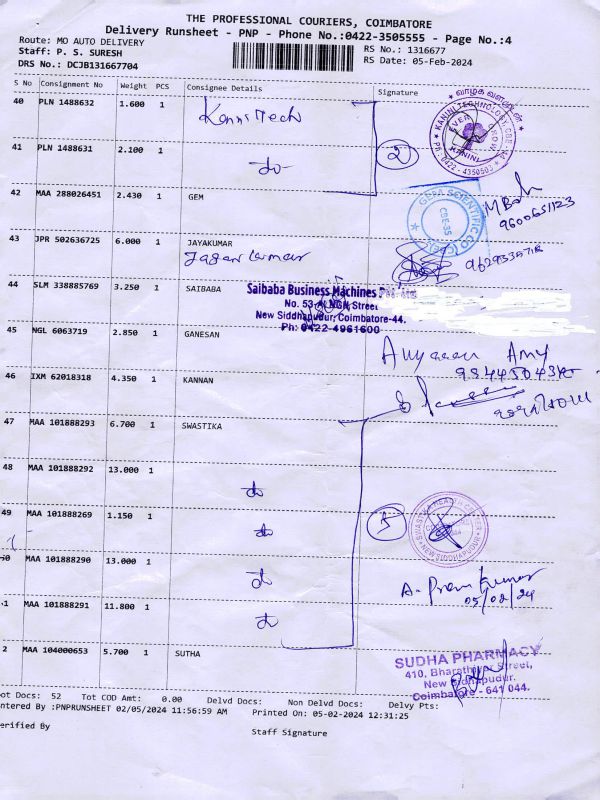 THE PROFESSIONAL COURIERS, COIMBATORE
Delivery Runsheet - PNP - Phone No.:0422-3505555 - Page No.:4
Route: MO AUTO DELIVERY
RS No.: 1316677
Staff: P. S. SURESH
RS Date: 05-Feb-2024
DRS No.: DCJB131667704
S No Consignment No Weight PCS Consignee Details Signature
40 PLN 1488632 1.600 1 Kanni Tech
வாழ்க வளமுடன்
KANINI TECHNOLOGY
EVER GROW
KANINI
PH: 0422 - 4350505
41 PLN 1488631 2.100 1 do
2
42 MAA 288026451 2.430 1 GEM
GEFA SCIENTIFIC CO
CBE-35
9600651123
43 JPR 502636725 6.000 1 JAYAKUMAR
Jagan kumar
44 SLM 338885769 3.250 1 SAIBABA
Saibaba Business Machines Pvt. Ltd
New Siddhapudur, Coimbatore-44.
Ph: 0422-4961600
45 NGL 6063719 2.850 1 GANESAN
46 IXM 62018318 4.350 1 KANNAN
47 MAA 101888293 6.700 1 SWASTIKA
48 MAA 101888292 13.000 1 do
49 MAA 101888269 1.150 1 do
5
0 MAA 101888290 13.000 1 do
A. Prem Kumar
05/02/24
1 MAA 101888291 11.800 1 do
2 MAA 104000653 5.700 1 SUTHA
SUDHA PHARMACY
410, Bharathiyar Street,
New Sidhapudur,
Coimbatore - 641 044.
ot Docs: 52 Tot COD Amt: 0.00 Delvd Docs: Non Delvd Docs: Delvy Pts:
ntered By :PNPRUNSHEET 02/05/2024 11:56:59 AM Printed On: 05-02-2024 12:31:25
erified By
Staff Signature